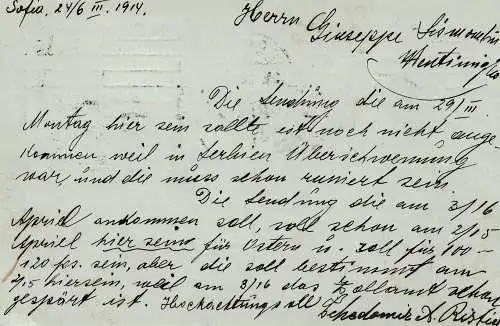 Sofia, 24/6 III. 1914.
Herrn
Giuseppe Sismondini
Ventimiglia
Die Sendung die am 29/III
Montag hier sein sollte ist noch nicht ange-
kommen weil in Serbien Überschwemmung
war, und die muss schon runiert sein.
Die Sendung die am 3/16
April ankommen soll, soll schon am 2/15
April hier sein für Ostern u. soll für 100-
120 frs. sein, aber die soll bestimmt am
2/15 hier sein, weil am 3/16 das Zollamt schon
gespärt ist. Hochachtungsvoll